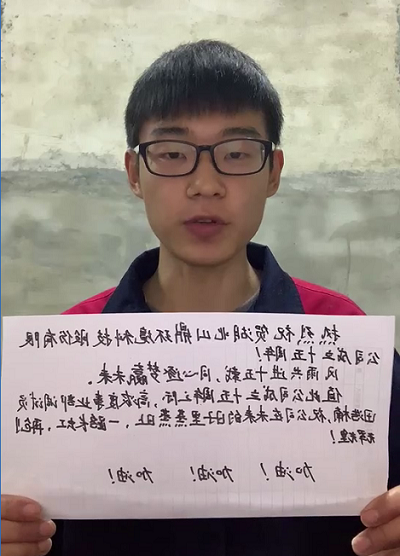 热烈祝贺湖北山鼎环境科技股份有限
公司成立十五周年!
风雨共进十五载,同心逐梦赢未来。
值此公司成立十五周年之际,高浓度事业部调试员
祝公司在未来的日子里蒸蒸日上,一路长红,再创
辉煌!
加油! 加油! 加油!